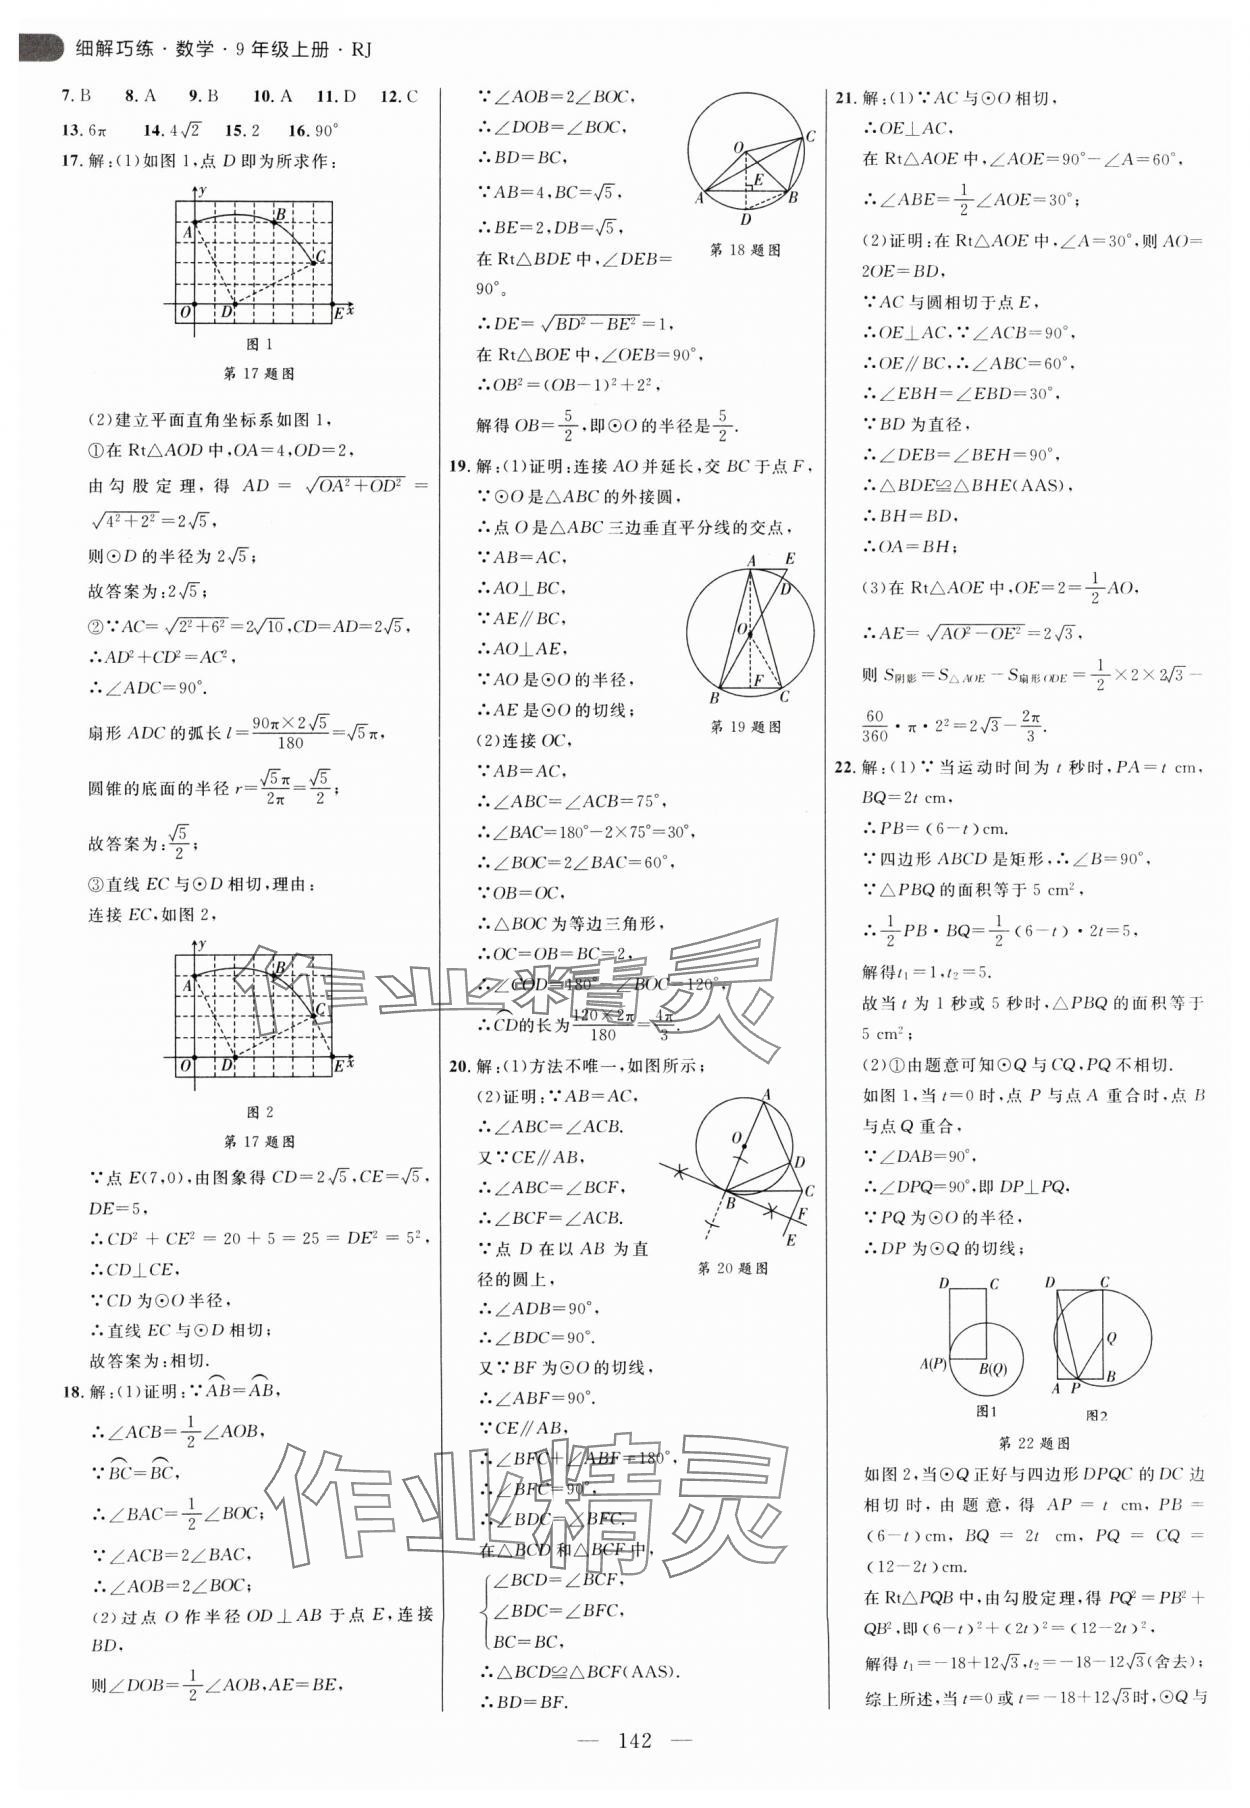 细解巧练·数学·9年级上册·RJ
7. B 8. A 9. B 10. A 11. D 12. C
13. 6π 14. 4√2 15. 2 16. 90°
17. 解:(1)如图1,点D即为所求作:
y
A
B
C
O
D
E
x
图1
第17题图
(2)建立平面直角坐标系如图1,
①在Rt△AOD中,OA=4,OD=2,
由勾股定理,得AD=√(OA²+OD²)=
√(4²+2²)=2√5,
则⊙D的半径为2√5;
故答案为:2√5;
②∵AC=√(2²+6²)=2√10,CD=AD=2√5,
∴AD²+CD²=AC²,
∴∠ADC=90°.
扇形ADC的弧长l=90π×2√5/180=√5π,
圆锥的底面的半径r=√5π/2π=√5/2;
故答案为:√5/2;
③直线EC与⊙D相切,理由:
连接EC,如图2,
y
A
B
C
O
D
E
x
图2
第17题图
∵点E(7,0),由图象得CD=2√5,CE=√5,
DE=5,
∴CD²+CE²=20+5=25=DE²=5²,
∴CD⊥CE,
∵CD为⊙O半径,
∴直线EC与⊙D相切;
故答案为:相切.
18. 解:(1)证明:∵⌒AB=⌒AB,
∴∠ACB=1/2∠AOB,
∵⌒BC=⌒BC,
∴∠BAC=1/2∠BOC;
∵∠ACB=2∠BAC,
∴∠AOB=2∠BOC;
(2)过点O作半径OD⊥AB于点E,连接
BD,
则∠DOB=1/2∠AOB,AE=BE,
∵∠AOB=2∠BOC,
∴∠DOB=∠BOC,
∴BD=BC,
∵AB=4,BC=√5,
∴BE=2,DB=√5,
在Rt△BDE中,∠DEB=
90°。
O
C
A
E
B
D
第18题图
∴DE=√(BD²-BE²)=1,
在Rt△BOE中,∠OEB=90°,
∴OB²=(OB-1)²+2²,
解得OB=5/2,即⊙O的半径是5/2.
19. 解:(1)证明:连接AO并延长,交BC于点F,
∵⊙O是△ABC的外接圆,
∴点O是△ABC三边垂直平分线的交点,
∵AB=AC,
∴AO⊥BC,
∵AE∥BC,
∴AO⊥AE,
∵AO是⊙O的半径,
∴AE是⊙O的切线;
A
E
D
O
B
F
C
第19题图
(2)连接OC,
∵AB=AC,
∴∠ABC=∠ACB=75°,
∴∠BAC=180°-2×75°=30°,
∴∠BOC=2∠BAC=60°,
∵OB=OC,
∴△BOC为等边三角形,
∴OC=OB=BC=2,
∴∠COD=180°-∠BOC=120°,
∴⌒CD的长为120×2π/180=4π/3.
20. 解:(1)方法不唯一,如图所示;
(2)证明:∵AB=AC,
∴∠ABC=∠ACB.
又∵CE∥AB,
∴∠ABC=∠BCF,
∴∠BCF=∠ACB.
∵点D在以AB为直
径的圆上,
∴∠ADB=90°,
∴∠BDC=90°.
又∵BF为⊙O的切线,
∴∠ABF=90°.
∵CE∥AB,
∴∠BFC+∠ABF=180°,
∴∠BFC=90°,
∴∠BDC=∠BFC.
在△BCD和△BCF中,
∠BCD=∠BCF,
∠BDC=∠BFC,
BC=BC,
∴△BCD≌△BCF(AAS).
∴BD=BF.
A
O
D
B
C
F
E
第20题图
21. 解:(1)∵AC与⊙O相切,
∴OE⊥AC,
在Rt△AOE中,∠AOE=90°-∠A=60°,
∴∠ABE=1/2∠AOE=30°;
(2)证明:在Rt△AOE中,∠A=30°,则AO=
2OE=BD,
∵AC与圆相切于点E,
∴OE⊥AC,∵∠ACB=90°,
∴OE∥BC,∴∠ABC=60°,
∴∠EBH=∠EBD=30°,
∵BD为直径,
∴∠DEB=∠BEH=90°,
∴△BDE≌△BHE(AAS),
∴BH=BD,
∴OA=BH;
(3)在Rt△AOE中,OE=2=1/2AO,
∴AE=√(AO²-OE²)=2√3,
则S阴影=S△AOE-S扇形ODE=1/2×2×2√3-
60/360·π·2²=2√3-2π/3.
22. 解:(1)∵当运动时间为t秒时,PA=t cm,
BQ=2t cm,
∴PB=(6-t)cm.
∵四边形ABCD是矩形,∴∠B=90°,
∵△PBQ的面积等于5 cm²,
∴1/2PB·BQ=1/2(6-t)·2t=5,
解得t₁=1,t₂=5.
故当t为1秒或5秒时,△PBQ的面积等于
5 cm²;
(2)①由题意可知⊙Q与CQ,PQ不相切.
如图1,当t=0时,点P与点A重合时,点B
与点Q重合,
∵∠DAB=90°,
∴∠DPQ=90°,即DP⊥PQ,
∵PQ为⊙O的半径,
∴DP为⊙Q的切线;
D C
A(P)
B(Q)
图1
D C
Q
A P B
图2
第22题图
如图2,当⊙Q正好与四边形DPQC的DC边
相切时,由题意,得AP=t cm,PB=
(6-t)cm,BQ=2t cm,PQ=CQ=
(12-2t)cm.
在Rt△PQB中,由勾股定理,得PQ²=PB²+
QB²,即(6-t)²+(2t)²=(12-2t)²,
解得t₁=-18+12√3,t₂=-18-12√3(舍去);
综上所述,当t=0或t=-18+12√3时,⊙Q与
作业精灵
作业精灵
— 142 —